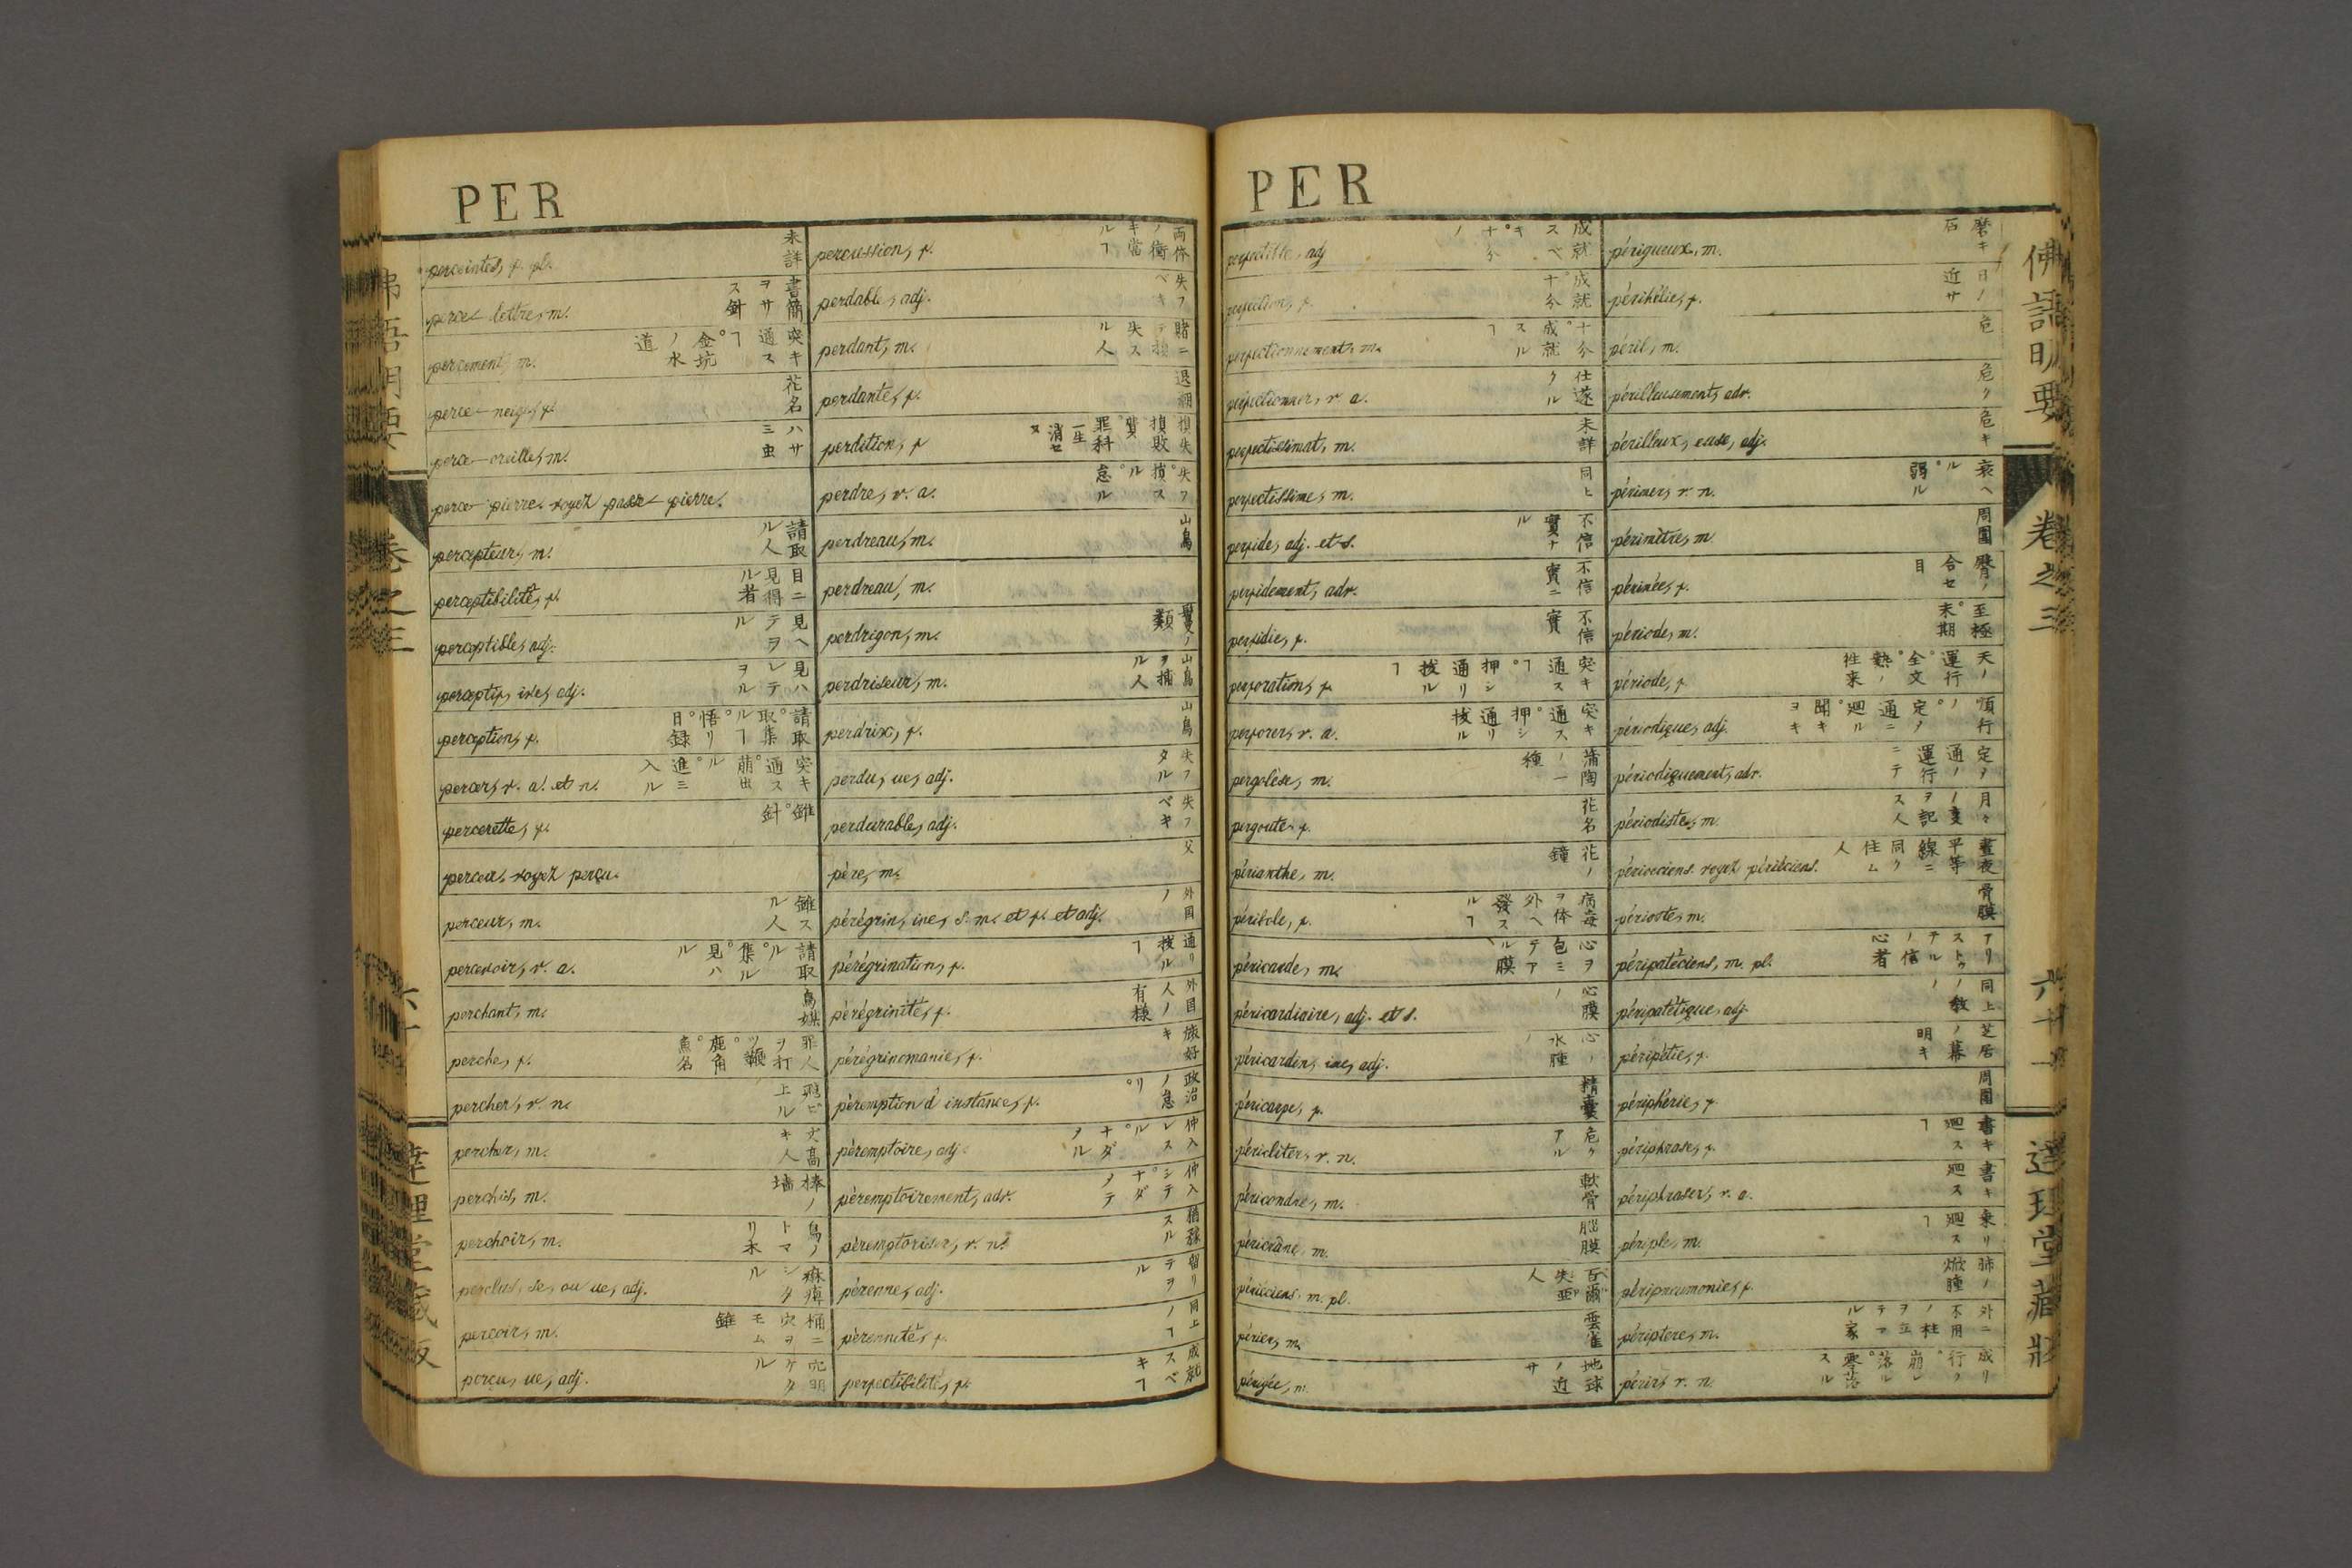 PER
perceintes, f. pl. 未詳
perce-lettre, m. 書簡ヲサス針
percement, m. 突キ通スヿ。金坑ノ水道
perce-neige, f. 花名
perce-oreille, m. ハサミ虫
perce-pierre. voyez passe-pierre.
percepteur, m. 請取ル人
perceptibilité, f. 目ニ見得ル者
perceptible, adj. 見ヘテヲル
perceptif, ive, adj. 見ハレテヲル
perception, f. 請取。取集ルヿ。悟リ。日録
percer, v. a. et n. 突キ通ス。萠出ル。進ミ入ル
percerette, f. 錐。針
perceu, voyez perçu.
perceur, m. 錐スル人
percevoir, v. a. 請取ル。集ル。見ハル
perchant, m. 鳥媒
perche, f. 罪人ヲ打ツ鞭。鹿角。魚名
percher, v. n. 飛ビ上ル
percher, m. 丈高キ人
perchis, m. 棒ノ墻
perchoir, m. 鳥ノトマリ木
perclus, se, ou ue, adj. 麻痺シタル
percoir, m. 桶ニ穴ヲモム錐
perçu, ue, adj. 穴明ケタル
percussion, f. 両体ノ衝キ當ルヿ
perdable, adj. 失フベキ
perdant, m. 賭ニテ損失スル人
perdante, f. 退潮
perdition, f. 損失。損敗。費。罪科一生消セヌ
perdre, v. a. 失フ。損スル。怠ル
perdreau, m. 山鳥
perdreau, m.
perdrigon, m. ノ類
perdriseur, m. 山鳥ヲ捕ル人
perdrix, f. 山鳥
perdu, ue, adj. 失フタル
perdurable, adj. 失フベキ
père, m. 父
pérégrin, ine, s. m. et f. et adj. 外国ノ
pérégrination, f. 通リ拔ルヿ
pérégrinité, f. 外国人ノ有様
pérégrinomanie, f. 旅好キ
péremption d'instance, f. 政治ノ怠リ。
péremptoire, adj. 仲入レスル。ナダメル
péremptoirement, adv. 仲入シテ。ナダメテ
péremptoriser, v. n. 猶豫スル
pérenne, adj. 留リテヲル
pérennité, f. 同上ノヿ
perfectibilité, f. 成就スベキヿ
PER
perfectible, adj. 成就スベキ。十分ノ
perfection, f. 成就。十分
perfectionnement, m. 十分。成就スルヿ
perfectionner, v. a. 仕遂クル
perfectissimat, m. 未詳
perfectissime, m. 同上
perfide, adj. et s. 不信實ナル
perfidement, adv. 不信實ニ
perfidie, f. 不信實
perforation, f. 突キ通スヿ。押シ通リ拔ルヿ
perforer, v. a. 突キ通ス。押シ通リ拔ル
pergolèse, m. 蒲陶ノ一種
pergoute, f. 花名
périanthe, m. 花ノ鐘
péribole, f. 病毒ヲ体外ヘ發スルヿ
péricarde, m. 心ヲ包ミテアル膜
péricardiaire, adj. et s. 心膜ノ
péricardin, ine, adj. 心ノ水腫ノ
péricarpe, f. 精囊
péricliter, v. n. 危クアル
péricondre, m. 軟骨
péricrâne, m. 脳膜
périéciens. m. pl.
périer, m. 雲雀
périgée, m. 地球ノ近サ
périgueux, m. 磨キ石
périhélie, f. 日ノ近サ
péril, m. 危
périlleusement, adv. 危ク
périlleux, euse, adj. 危キ
périmer, v. n. 衰ヘル。弱ル
périmètre, m. 周圍
périnée, f. 臀ノ合セ目
période, m. 至極。末期
période, f. 天ノ運行。全文。熱ノ往来
périodique, adj. 順行ノ。定ノ通ニ廻ル。聞キヲキ
périodiquement, adv. 定メ通ノ運行ニテ
périodiste, m. 月々ノ変ヲ記ス人
périoeciens. voyez périéciens. 晝夜平等線ニ同ク住ム人
périoste, m. 骨膜
péripatéciens, m. pl. アリストゥテルノ信心者
péripatétique, adj. 同上ノ教ノ
péripétie, f. 芝居ノ幕明キ
périphérie, f. 周圍
périphrase, f. 書キ廻スヿ
périphraser, v. a. 書キ廻ス
périple, m. 乗リ廻スヿ
péripneumonie, f. 肺ノ焮腫
périptère, m. 外ニ不用ノ柱ヲ立テマル家
périr, v. n. 成リ行ク。崩レ落ル。零落スル
佛語明要 卷之三 六十一 達理堂藏版